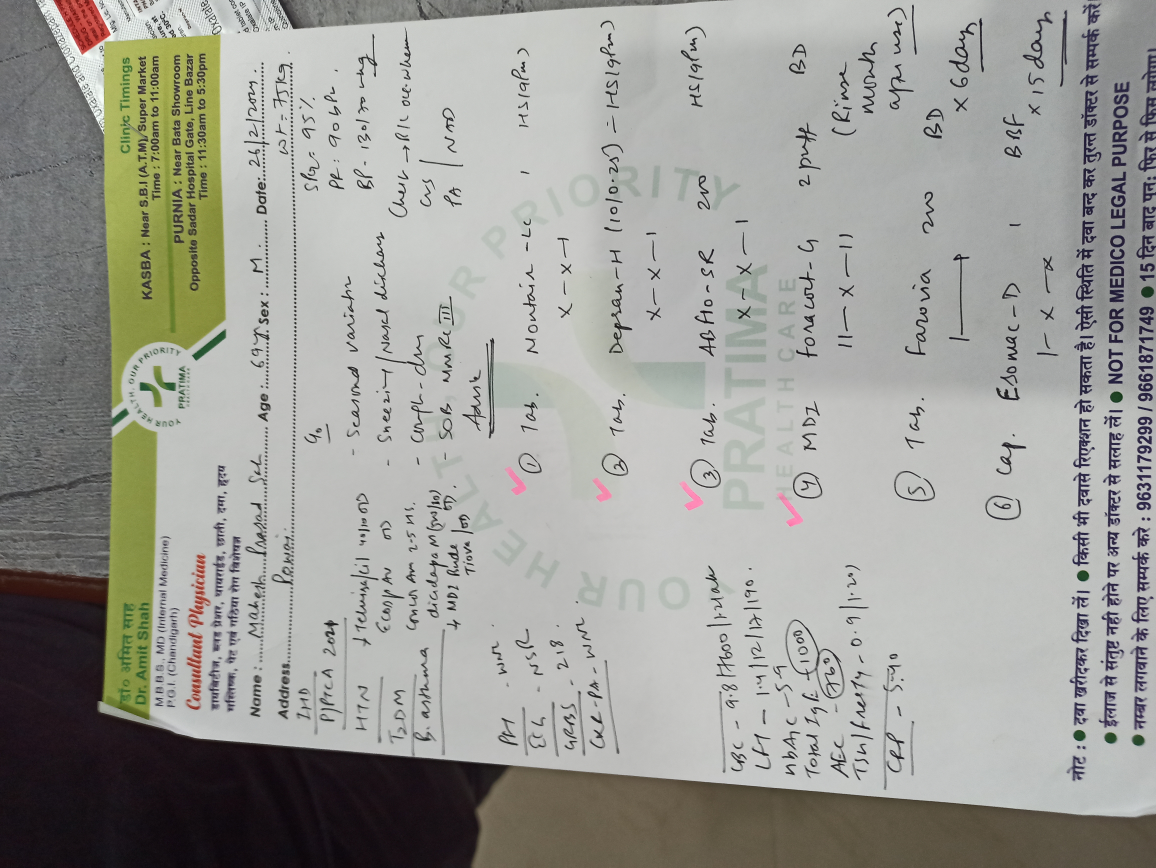 डॉ० अमित साह
Dr. Amit Shah
M.B.B.S., MD (Internal Medicine)
P.G.I. (Chandigarh)
Consultant Physician
YOUR HEALTH, OUR PRIORITY
PRATIMA
Clinic Timings
KASBA : Near S.B.I (A.T.M)/Super Market
Time : 7:00am to 11:00am
PURNIA : Near Bata Showroom
Opposite Sadar Hospital Gate, Line Bazar
Time : 11:30am to 5:30pm
Name : Mahesh Prasad Sah Age : 69 yr Sex : M Date: 26/2/2024
Address
SPO2 = 95%
Wt = 75kg
PR : 90 bpm
BP - 130/70 mmHg
IHD
P/PTCA 2024
HTN
T2DM
B. asthma
Ecospry AV OD
Concor AM 2.5
+ MDI
Tiova OD
- Seasonal variation
- Sneezing / Nasal discharge
- Cough - dry
- SOB MMRC III
Chest →
CVS
PA NAD
Advise
① Tab. Montair-LC 1 HS (9pm)
X - X - 1
② Tab. Depran-H (10/0.25) - HS (9pm)
X - X - 1
③ Tab. AB Flo-SR 200 HS (9pm)
X - X - 1
④ MDI Foracort-G 2 puff BD
11 - X - 11 (Rinse mouth after use)
⑤ Tab. Farovia 200 BD
X 6 days
⑥ Cap. Esomac-D 1 BBF
1 - X - X X 15 days
PH - WNL
ECG - NSR
GRBS - 218
CXR-PA - WNL
CBC - 9.8/7600/
LFT - 1.4/12/17/190
HbA1c - 5.9
Total IgE - 1000
AEC - 760
TSH/FreeT4 - 0.9/1.20
CRP - 5.90
YOUR HEALTH, OUR PRIORITY
PRATIMA
HEALTH CARE
नोट : ● दवा खरीदकर दिखा लें। ● किसी भी दवासे रिएक्शन हो सकता है। ऐसी स्थिति में दवा बन्द कर तुरन्त डॉक्टर से सम्पर्क करें।
● ईलाज से संतुष्ट नही होने पर अन्य डॉक्टर से सलाह लें। ● NOT FOR MEDICO LEGAL PURPOSE
● नम्बर लगवाने के लिए, सम्पर्क करे : 9631179299 / 9661871749 ● 15 दिन बाद पुन: फिर से फिस लगेगा।